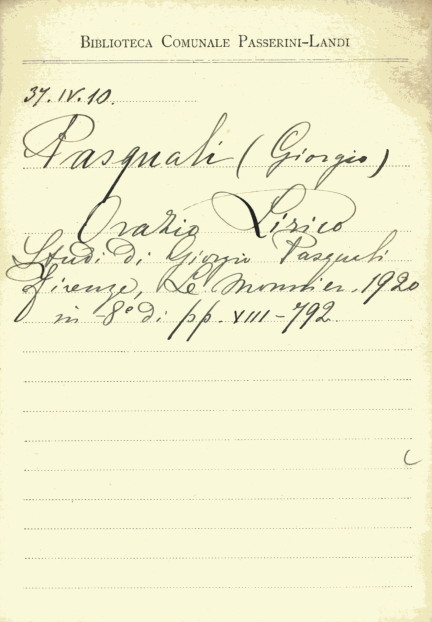 BIBLIOTECA COMUNALE PASSERINI-LANDI
37.IV.10.
Pasquali (Giorgio)
Orazio Lirico
Studi di Giorgio Pasquali
Firenze, Le Monnier. 1920
in -8° di pp. XIII-792